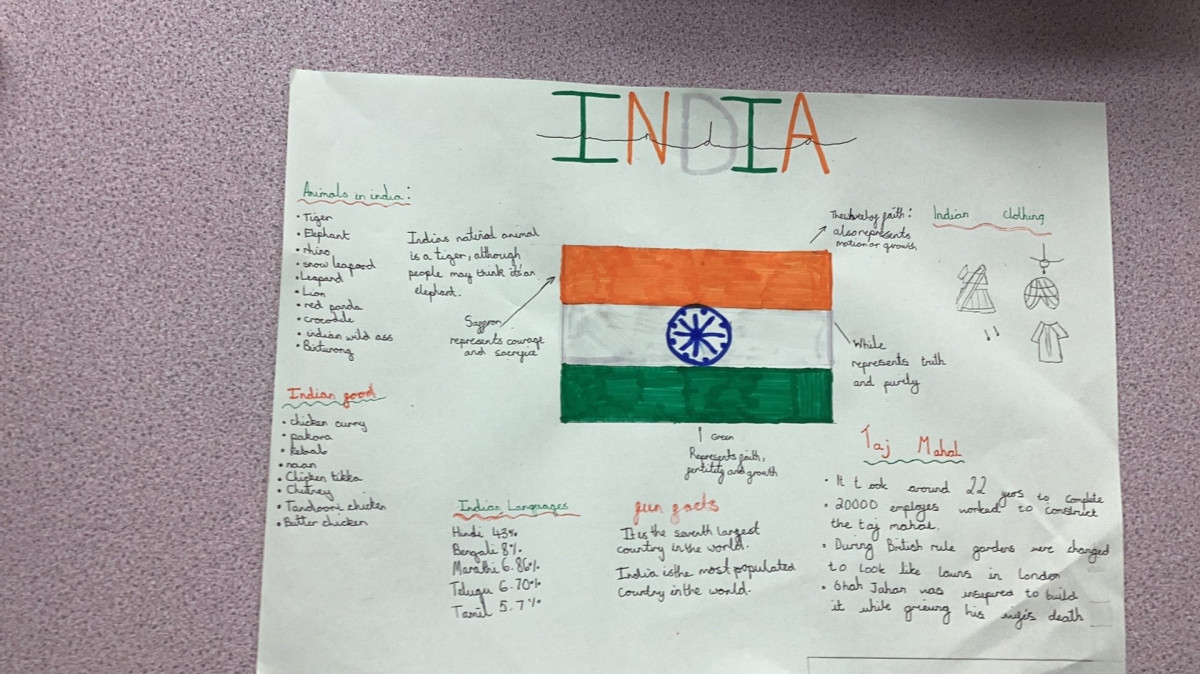 INDIA
india
Animals in india:
• Tiger
• Elephant
• rhino
• snow leapard
• Leapard
• Lion
• red panda
• crocodile
• indian wild ass
• Binturong
Indias national animal
is a tiger, although
people may think its an
elephant.
Saffron
represents courage
and sacrifice
The wheel of faith:
also represents
motion or growth
Indian clothing
While
represents truth
and purity
Green
Represents faith,
fertility and growth
Indian food
• chicken curry
• pakora
• kebab
• naan
• Chicken tikka
• Chutney
• Tandoori chicken
• Butter chicken
Indian Languages
Hindi 43%
Bengali 8%
Marathi 6.86%
Telugu 6.70%
Tamil 5.7%
fun facts
It is the seventh largest
country in the world.
India is the most populated
country in the world.
Taj Mahal
• It took around 22 years to complete
• 20000 employes worked to construct
the taj mahal.
• During British rule gardens were changed
to look like lawns in London
• Shah Jahan was inspired to build
it while grieving his death